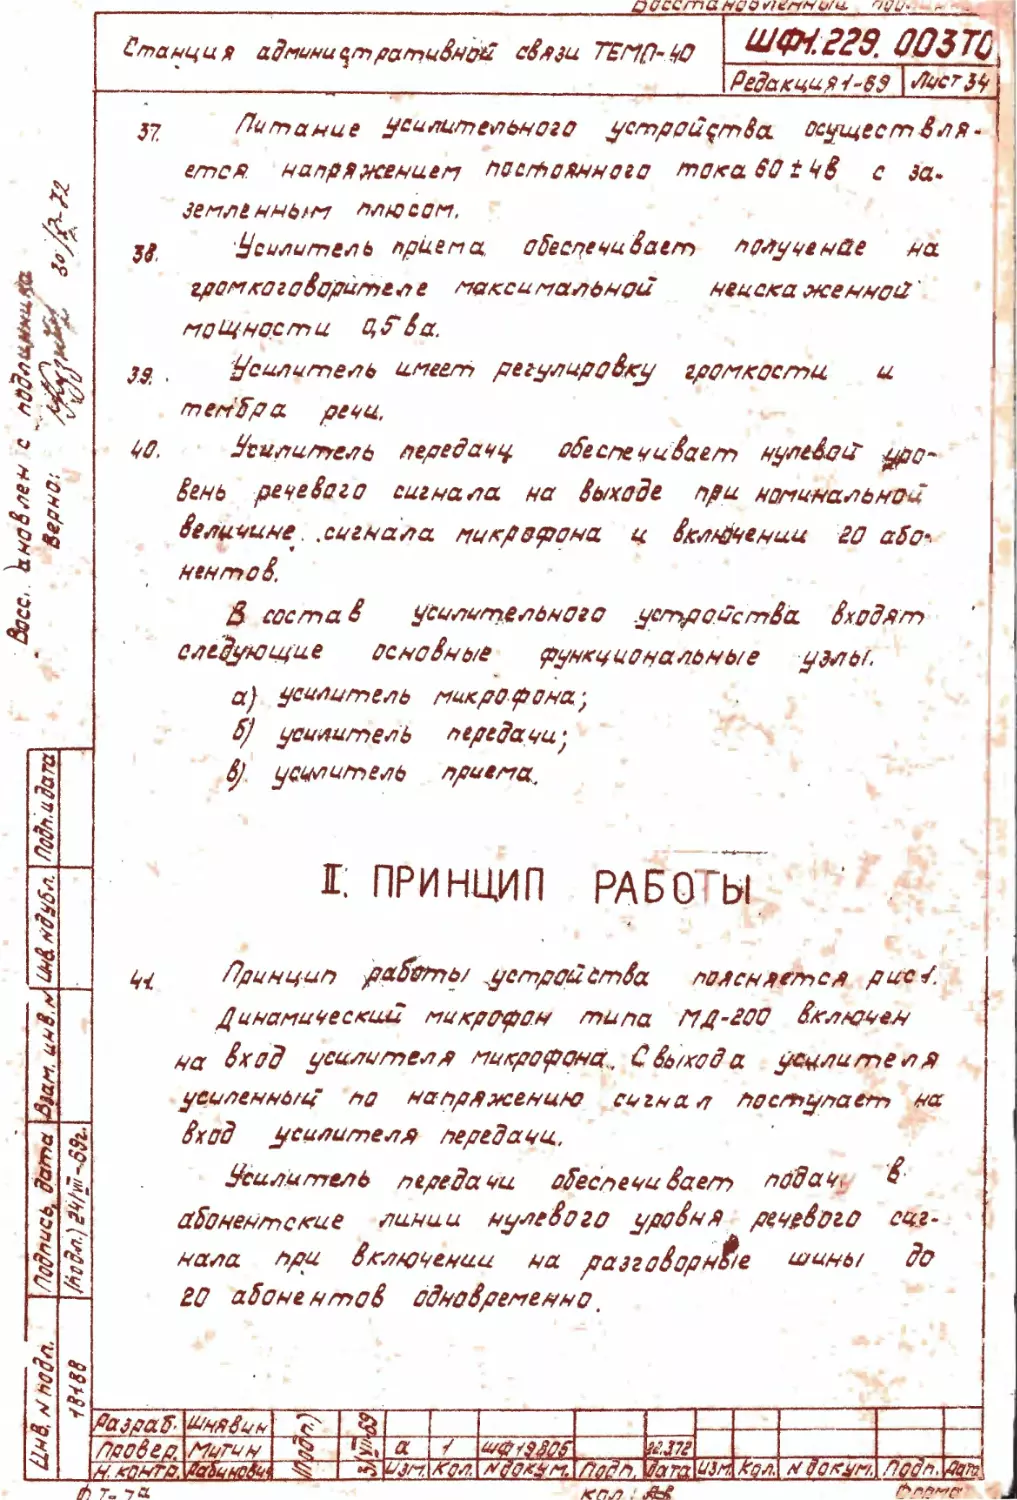 Станция административной связи ТЕМП-40
ШФ1.229.003ТО
Редакция1-69
Лист34
37. Питание усилительного устройства осуществля-
ется напряжением постоянного тока 60±4в с за-
земленным плюсом.
38. Усилитель приема обеспечивает получение на
громкоговорителе максимальной неискаженной
мощности 0,5ва.
39. Усилитель имеет регулировку громкости и
тембра речи.
40. Усилитель передачи обеспечивает нулевой уро-
вень речевого сигнала на выходе при номинальной
величине сигнала микрофона и включении 20 або-
нентов.
В состав усилительного устройства входят
следующие основные функциональные узлы.
а) усилитель микрофона;
б) усилитель передачи;
в) усилитель приема.
II. ПРИНЦИП РАБОТЫ
41. Принцип работы устройства поясняется рис1.
Динамический микрофон типа МД-200 включен
на вход усилителя микрофона. С выхода усилителя
усиленный по напряжению сигнал поступает на
вход усилителя передачи.
Усилитель передачи обеспечивает подач в
абонентские линии нулевого уровня речевого сиг-
нала при включении на разговорные шины до
20 абонентов одновременно.
Восстановлен с подлинника
Верно:
Инв. N подл. Подпись, дата Взам. инв. N Инв. N дубл. Подп. и дата
18188 (подл.) 24/VII-69г.
Разраб. Шнявин (Подп.)
Провер. Митин а 1 ШФ19805
Н. контр. Рабинович Изм. Кол. N докум. Подп. Дата Изм. Кол. N докум. Подп. Дата